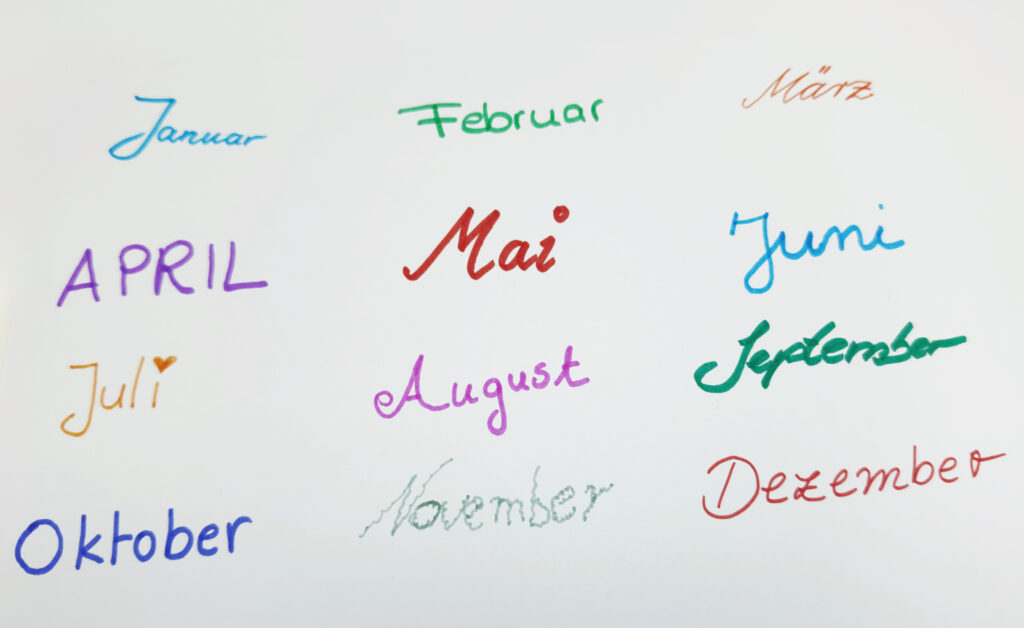 Januar Februar März
APRIL Mai Juni
Juli August September
Oktober November Dezember